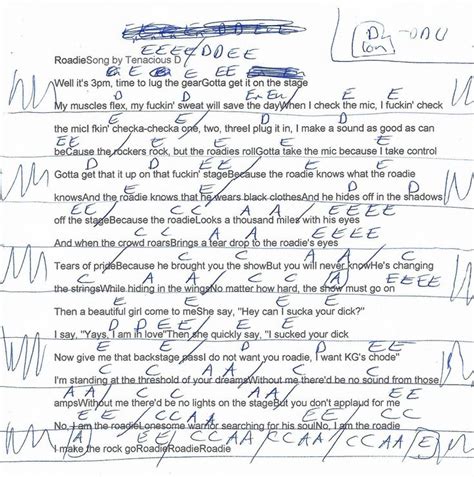 D
lon
- ODU
E E E E D D E E
RoadieSong by Tenacious D
E E E E E D
Well it's 3pm, time to lug the gearGotta get it on the stage
D E E E
My muscles flex, my fuckin' sweat will save the dayWhen I check the mic, I fuckin' check
E D D
the micI fkin' checka-checka one, two, threeI plug it in, I make a sound as good as can
E E E E D
beCause the rockers rock, but the roadies rollGotta take the mic because I take control
D D E E
Gotta get that it up on that fuckin' stageBecause the roadie knows what the roadie
D D E E E E
knowsAnd the roadie knows that he wears black clothesAnd he hides off in the shadows
C C A A E E E E
off the stageBecause the roadieLooks a thousand miles with his eyes
C C A A
And when the crowd roarsBrings a tear drop to the roadie's eyes
E A A C
Tears of prideBecause he brought you the showBut you will never knowHe's changing
C A A C C A E E E E
the stringsWhile hiding in the wingsNo matter how hard, the show must go on
E E D
Then a beautiful girl come to meShe say, "Hey can I sucka your dick?"
D D E E E E
I say, "Yays, I am in love"Then she quickly say, "I sucked your dick
E E D E
Now give me that backstage passI do not want you roadie, I want KG's chode"
C C A A C
I'm standing at the threshold of your dreamsWithout me there'd be no sound from those
C A A A A E E
ampsWithout me there'd be no lights on the stageBut you don't applaud for me
E E C C A A C C
No, I am the roadieLonesome warrior searching for his soulNo, I am the roadie
A E E C C A A C C A A C C A A E
I make the rock goRoadieRoadieRoadie